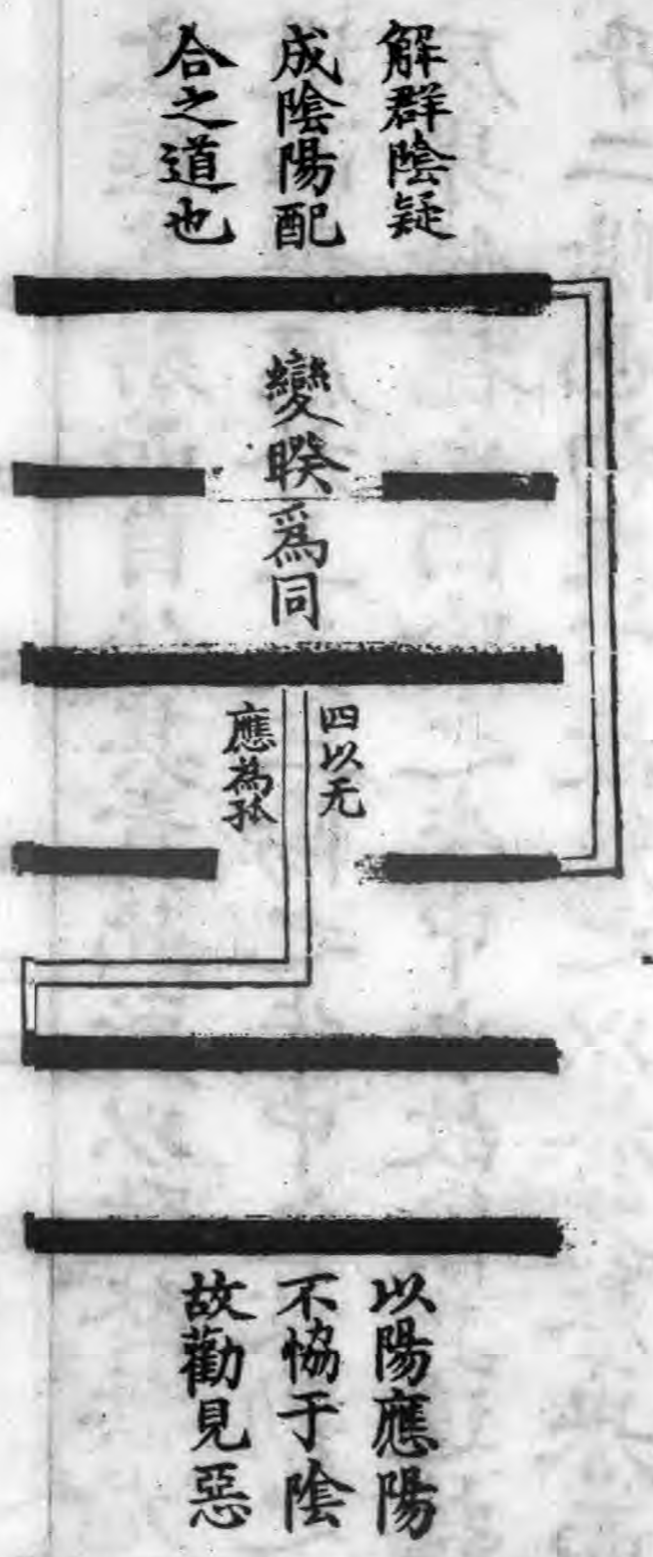 解群陰疑
成陰陽配
合之道也
變睽爲同
四以无
應為孤
以陽應陽
不恊于陰
故勸見惡